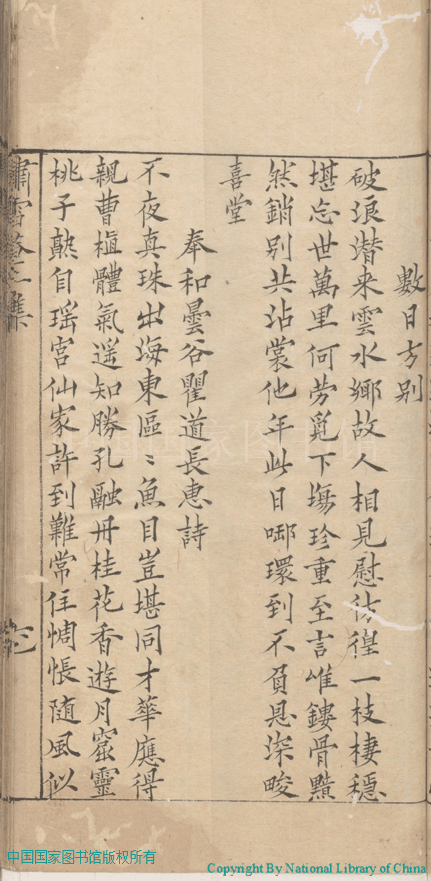 數日方別
破浪潛来雲水鄉故人相見慰彷徨一枝棲穩
堪忘世萬里何勞覓下塲珍重至言唯鏤骨黯
然銷別共沾裳他年此日啣環到不負恩深畯
喜堂
奉和曇谷瞿道長惠詩
不夜真珠出海東區〻魚目豈堪同才華應得
親曹植體氣遥知勝孔融丹桂花香遊月窟靈
桃子熟自瑶宫仙家許到難常住惆悵随風似
中国国家图书馆版权所有
Copyright By National Library of China